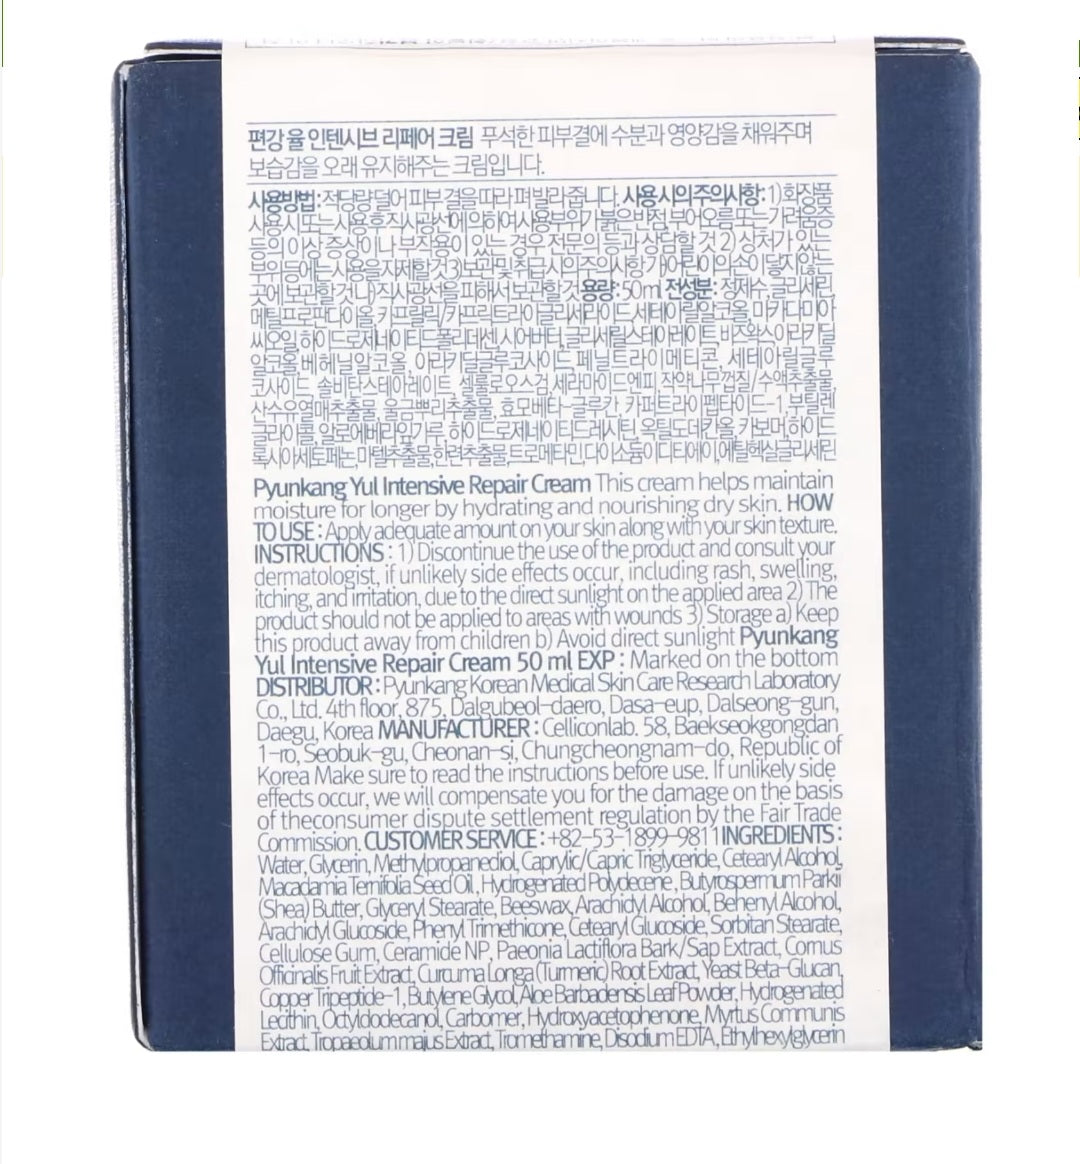 편강 율 인텐시브 리페어 크림 푸석한 피부결에 수분과 영양감을 채워주며
보습감을 오래 유지해주는 크림입니다.
사용방법: 적당량 덜어 피부 결을 따라 펴 발라 줍니다. 사용 시의 주의사항: 1) 화장품
사용 시 또는 사용 후 직사광선에 의하여 사용부위가 붉은 반점, 부어오름 또는 가려움증
등의 이상 증상이나 부작용이 있는 경우 전문의 등과 상담할 것 2) 상처가 있는
부위 등에는 사용을 자제할 것 3) 보관 및 취급 시의 주의사항 가) 어린이의 손이 닿지 않는
곳에 보관할 것 나) 직사광선을 피해서 보관할 것 용량: 50ml 전성분: 정제수, 글리세린,
메틸프로판다이올, 카프릴릭/카프릭트라이글리세라이드, 세테아릴알코올, 마카다미아
씨오일, 하이드로제네이티드폴리데센, 시어버터, 글리세릴스테아레이트, 비즈왁스, 아라키딜
알코올, 베헤닐알코올, 아라키딜글루코사이드, 페닐트라이메티콘, 세테아릴글루
코사이드, 솔비탄스테아레이트, 셀룰로오스검, 세라마이드엔피, 작약나무껍질/수액추출물,
산수유열매추출물, 울금뿌리추출물, 효모베타-글루칸, 카퍼트라이펩타이드-1, 부틸렌
글라이콜, 알로에베라잎가루, 하이드로제네이티드레시틴, 옥틸도데칸올, 카보머, 하이드
록시아세토페논, 마텔추출물, 한련추출물, 트로메타민, 다이소듐이디티에이, 에틸헥실글리세린
Pyunkang Yul Intensive Repair Cream This cream helps maintain
moisture for longer by hydrating and nourishing dry skin. HOW
TO USE : Apply adequate amount on your skin along with your skin texture.
INSTRUCTIONS : 1) Discontinue the use of the product and consult your
dermatologist, if unlikely side effects occur, including rash, swelling,
itching, and irritation, due to the direct sunlight on the applied area 2) The
product should not be applied to areas with wounds 3) Storage a) Keep
this product away from children b) Avoid direct sunlight Pyunkang
Yul Intensive Repair Cream 50 ml EXP : Marked on the bottom
DISTRIBUTOR : Pyunkang Korean Medical Skin Care Research Laboratory
Co., Ltd. 4th floor, 875, Dalgubeol-daero, Dasa-eup, Dalseong-gun,
Daegu, Korea MANUFACTURER : Celliconlab. 58, Baekseokgongdan
1-ro, Seobuk-gu, Cheonan-si, Chungcheongnam-do, Republic of
Korea Make sure to read the instructions before use. If unlikely side
effects occur, we will compensate you for the damage on the basis
of theconsumer dispute settlement regulation by the Fair Trade
Commission. CUSTOMER SERVICE : +82-53-1899-9811 INGREDIENTS :
Water, Glycerin, Methylpropanediol, Caprylic/Capric Triglyceride, Cetearyl Alcohol,
Macadamia Ternifolia Seed Oil, Hydrogenated Polydecene, Butyrospermum Parkii
(Shea) Butter, Glyceryl Stearate, Beeswax, Arachidyl Alcohol, Behenyl Alcohol,
Arachidyl Glucoside, Phenyl Trimethicone, Cetearyl Glucoside, Sorbitan Stearate,
Cellulose Gum, Ceramide NP, Paeonia Lactiflora Bark/Sap Extract, Cornus
Officinalis Fruit Extract, Curcuma Longa (Turmeric) Root Extract, Yeast Beta-Glucan,
Copper Tripeptide-1, Butylene Glycol, Aloe Barbadensis Leaf Powder, Hydrogenated
Lecithin, Octyldodecanol, Carbomer, Hydroxyacetophenone, Myrtus Communis
Extract, Tropaeolum majus Extract, Tromethamine, Disodium EDTA, Ethylhexylglycerin